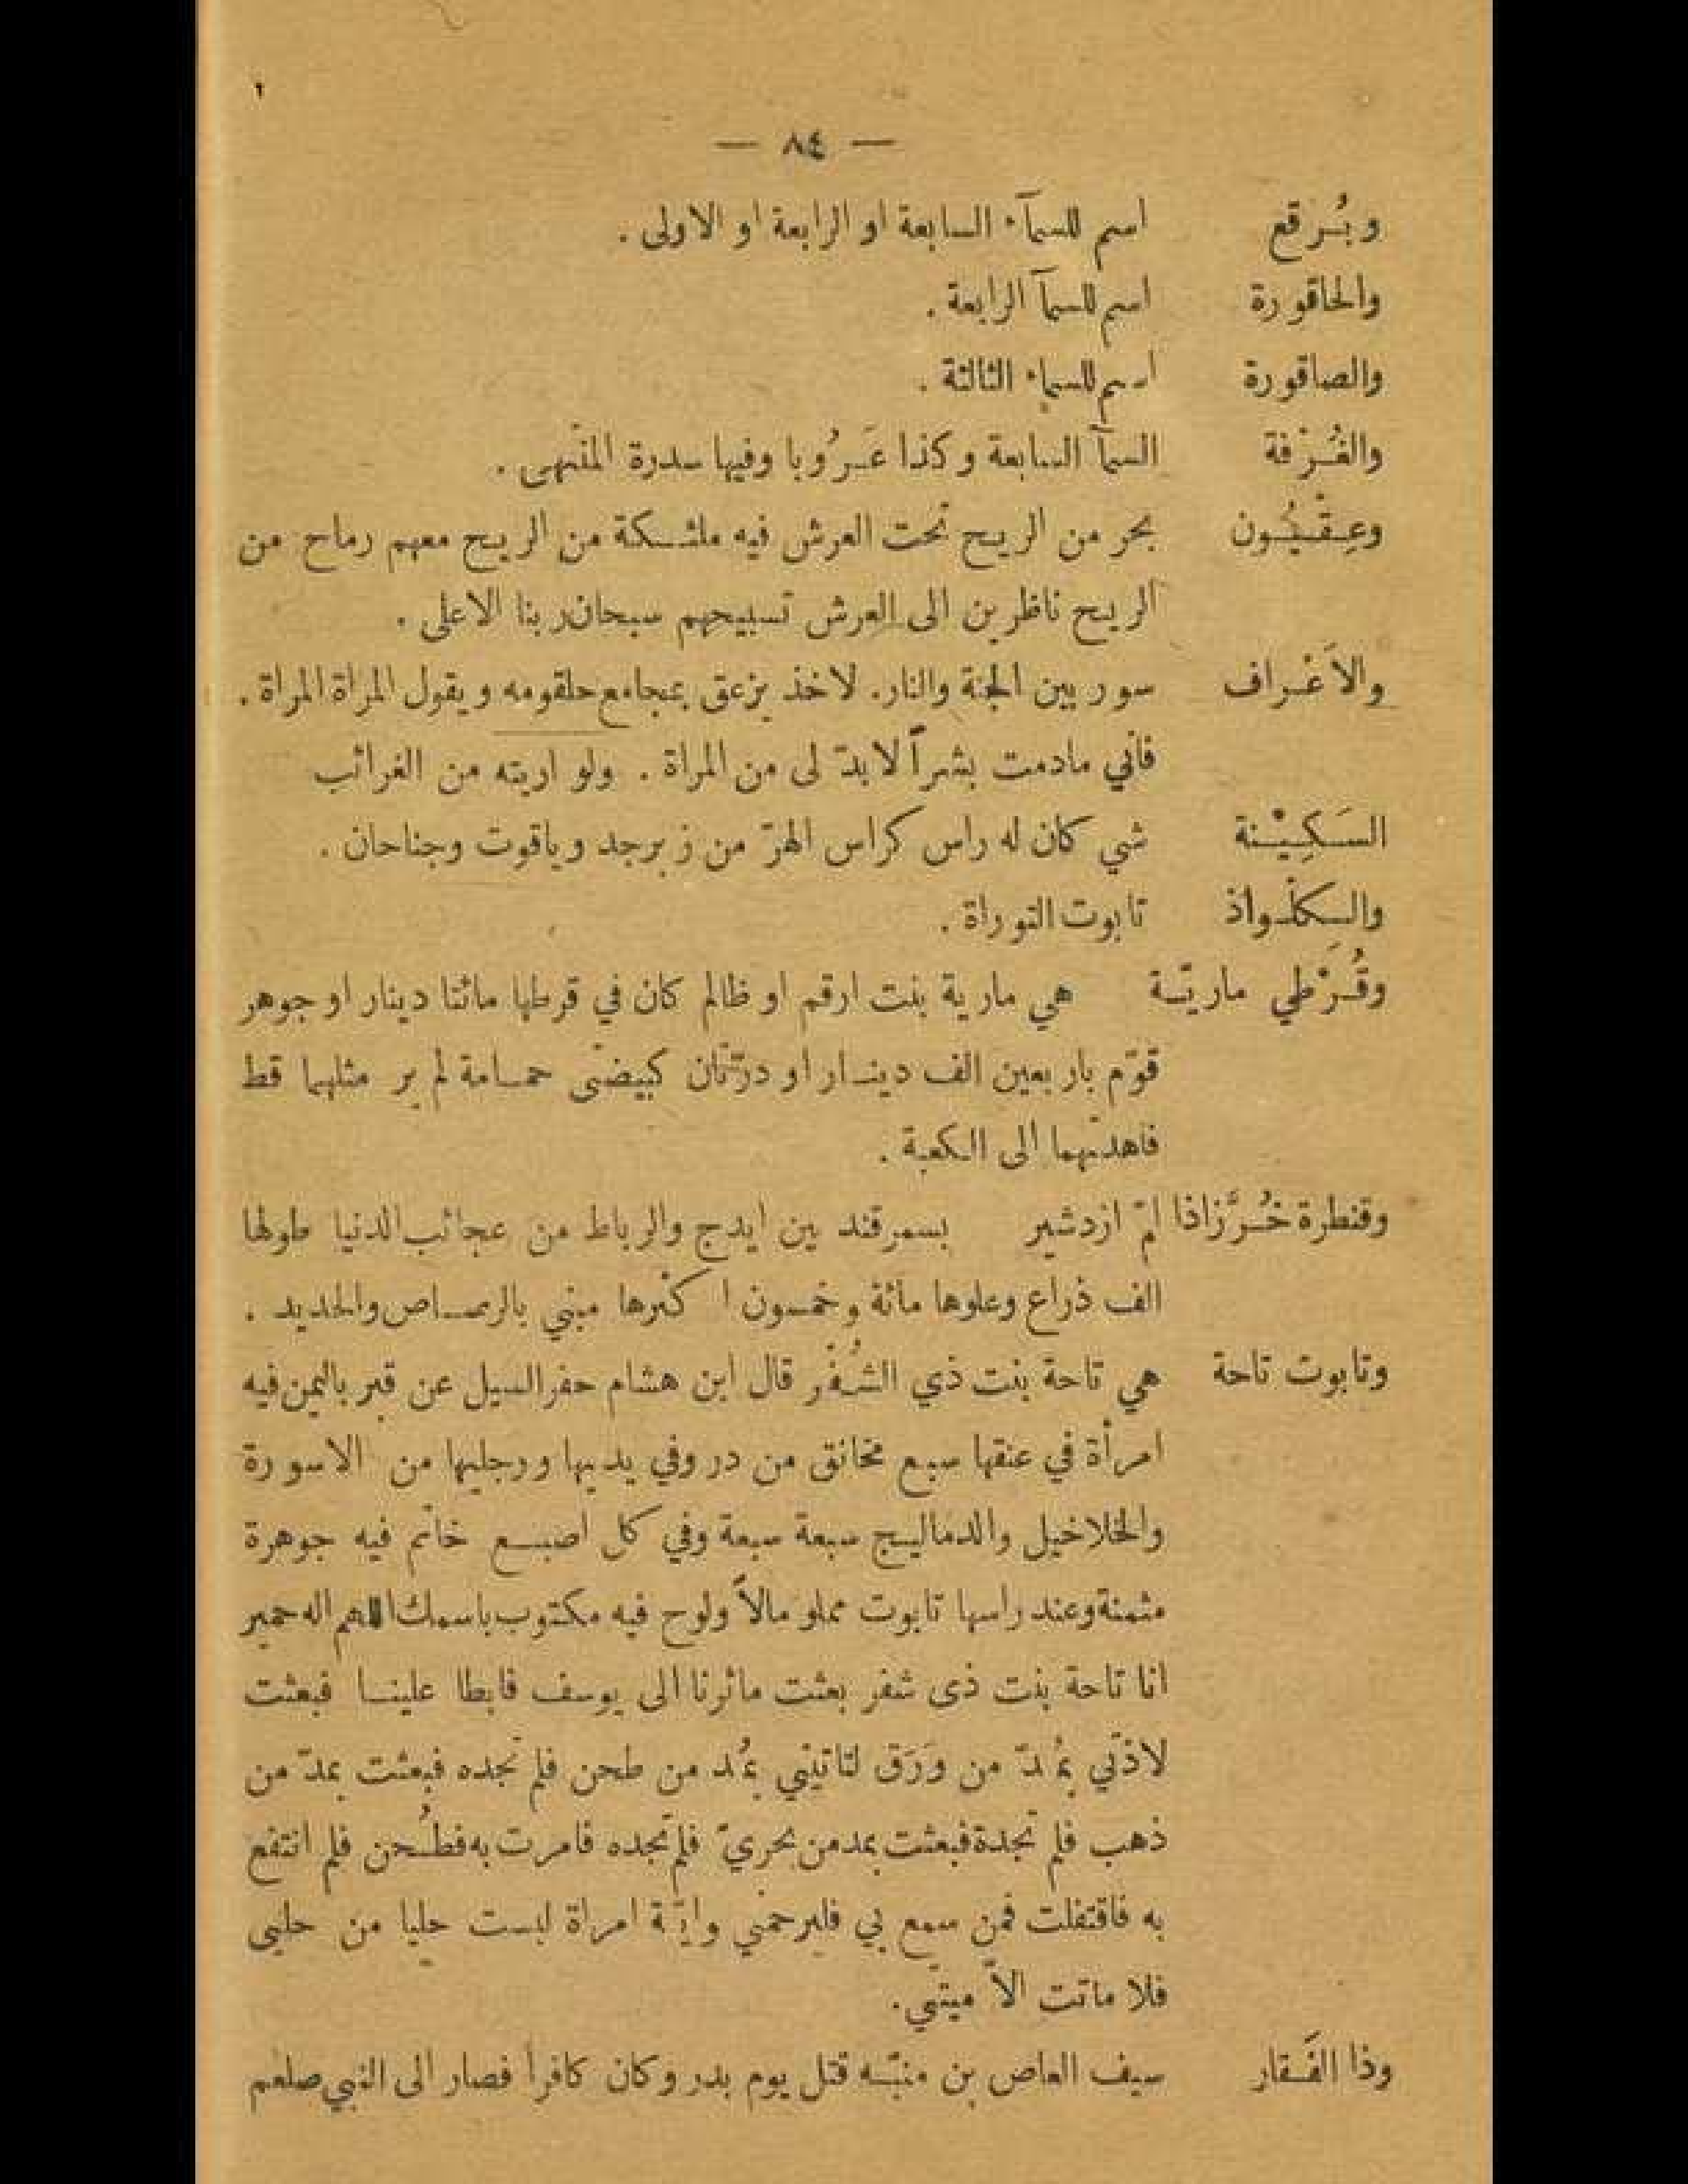 ١
— ٨٤ —
وبُرقع اسم للسمآء السابعة او الرابعة او الاولى .
والحاقورة اسم للسمآ الرابعة .
والصاقورة اسم للسماء الثالثة .
والغُرْفة السمآ السابعة وكذا عَرُوبا وفيها سدرة المنتهى .
وعِقْيُون بحر من الريح تحت العرش فيه ملئكة من الريح معهم رماح من
الريح ناظرين الى العرش تسبيحهم سبحان ربنا الاعلى .
والاَعْراف سور بين الجنة والنار. لاخذ يزعق بمجامع حلقومه ويقول المراة المراة .
فاني مادمت بشراً لا بدّ لى من المراة . ولو اريته من الغرائب
السَكِيْنة شي كان له راس كراس الهرّ من زبرجد وياقوت وجناحان .
والِكلْواذ تابوت التوراة .
وقُرْطي ماريّة هي مارية بنت ارقم او ظالم كان في قرطها مائتا دينار او جوهر
قوّم باربعين الف دينار او درّتان كبيضتى حمامة لم ير مثلهما قط
فاهدتهما الى الكعبة .
وقنطرة خُرَّزاذا امّ ازدشير بسمرقند بين ايدج والرباط من عجائب الدنيا طولها
الف ذراع وعلوها مائة وخمسون اكثرها مبني بالرصاص والحديد .
وتابوت تاحة هي تاحة بنت ذي الشُفْر قال ابن هشام حفر السيل عن قبر باليمن فيه
امرأة في عنقها سبع مخانق من در وفي يديها ورجليها من الاسورة
والخلاخيل والدماليج سبعة سبعة وفي كل اصبع خاتم فيه جوهرة
مثمنة وعند راسها تابوت مملو مالاً ولوح فيه مكتوب باسمك اللهم اله حمير
انا تاحة بنت ذى شفر بعثت مائرنا الى يوسف فابطا علينا فبعثت
لاذتي بمُدّ من وَرَق لتاتيني بمُد من طحن فلم تجده فبعثت بمدّ من
ذهب فلم تجدة فبعثت بمد من بحريّ فلم تجده فامرت به فطُحن فلم انتفع
به فاقتفلت فمن سمع بي فليرحمني وايّة امراة لبست حليا من حليى
فلا ماتت الاّ ميتتي.
وذا الفَقار سيف العاص بن منبّه قتل يوم بدر وكان كافراً فصار الى النبي صلعم